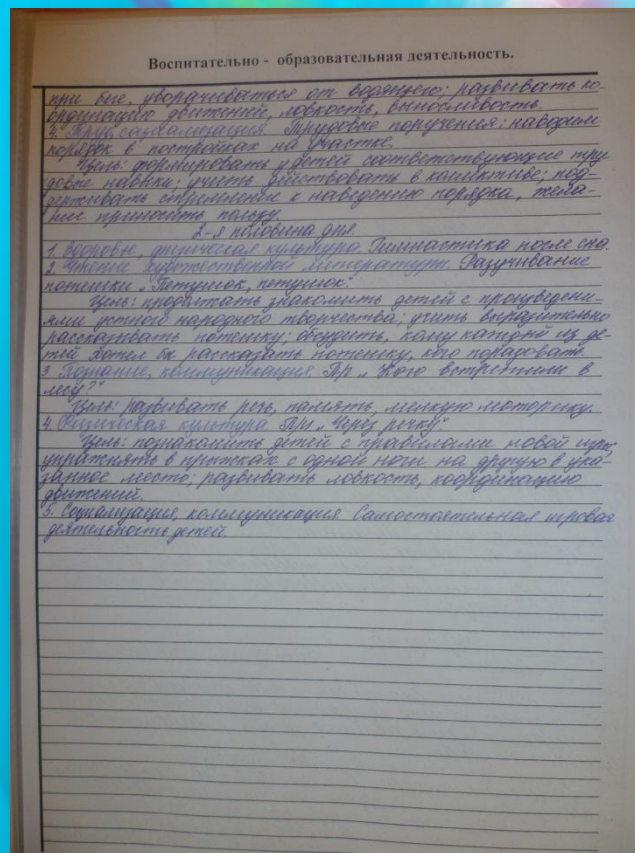 Воспитательно - образовательная деятельность.
при беге, уворачиваться от водящего; развивать ко-
ординацию движений, ловкость, выносливость.
4. Труд, социализация. Трудовые поручения: наводим
порядок в постройках на участке.
Цель: формировать у детей соответствующие тру-
довые навыки; учить действовать в коллективе; под-
держивать стремление к наведению порядка, жела-
ние приносить пользу.
2-я половина дня.
1. Здоровье, физическая культура. Гимнастика после сна.
2. Чтение художественной литературы. Разучивание
потешки „Петушок, петушок".
Цель: продолжать знакомить детей с произведени-
ями устного народного творчества; учить выразительно
рассказывать потешку; обсудить, кому каждый из де-
тей хотел бы рассказать потешку, кого порадовать.
3. Познание, коммуникация. „Кого встретили в
лесу?"
Цель: развивать речь, память, мелкую моторику.
4. Физическая культура. „Через речку"
Цель: познакомить детей с правилами новой игры,
упражнять в прыжках с одной ноги на другую в ука-
занное место; развивать ловкость, координацию
движений.
5. Социализация, коммуникация. Самостоятельная игровая
деятельность детей.